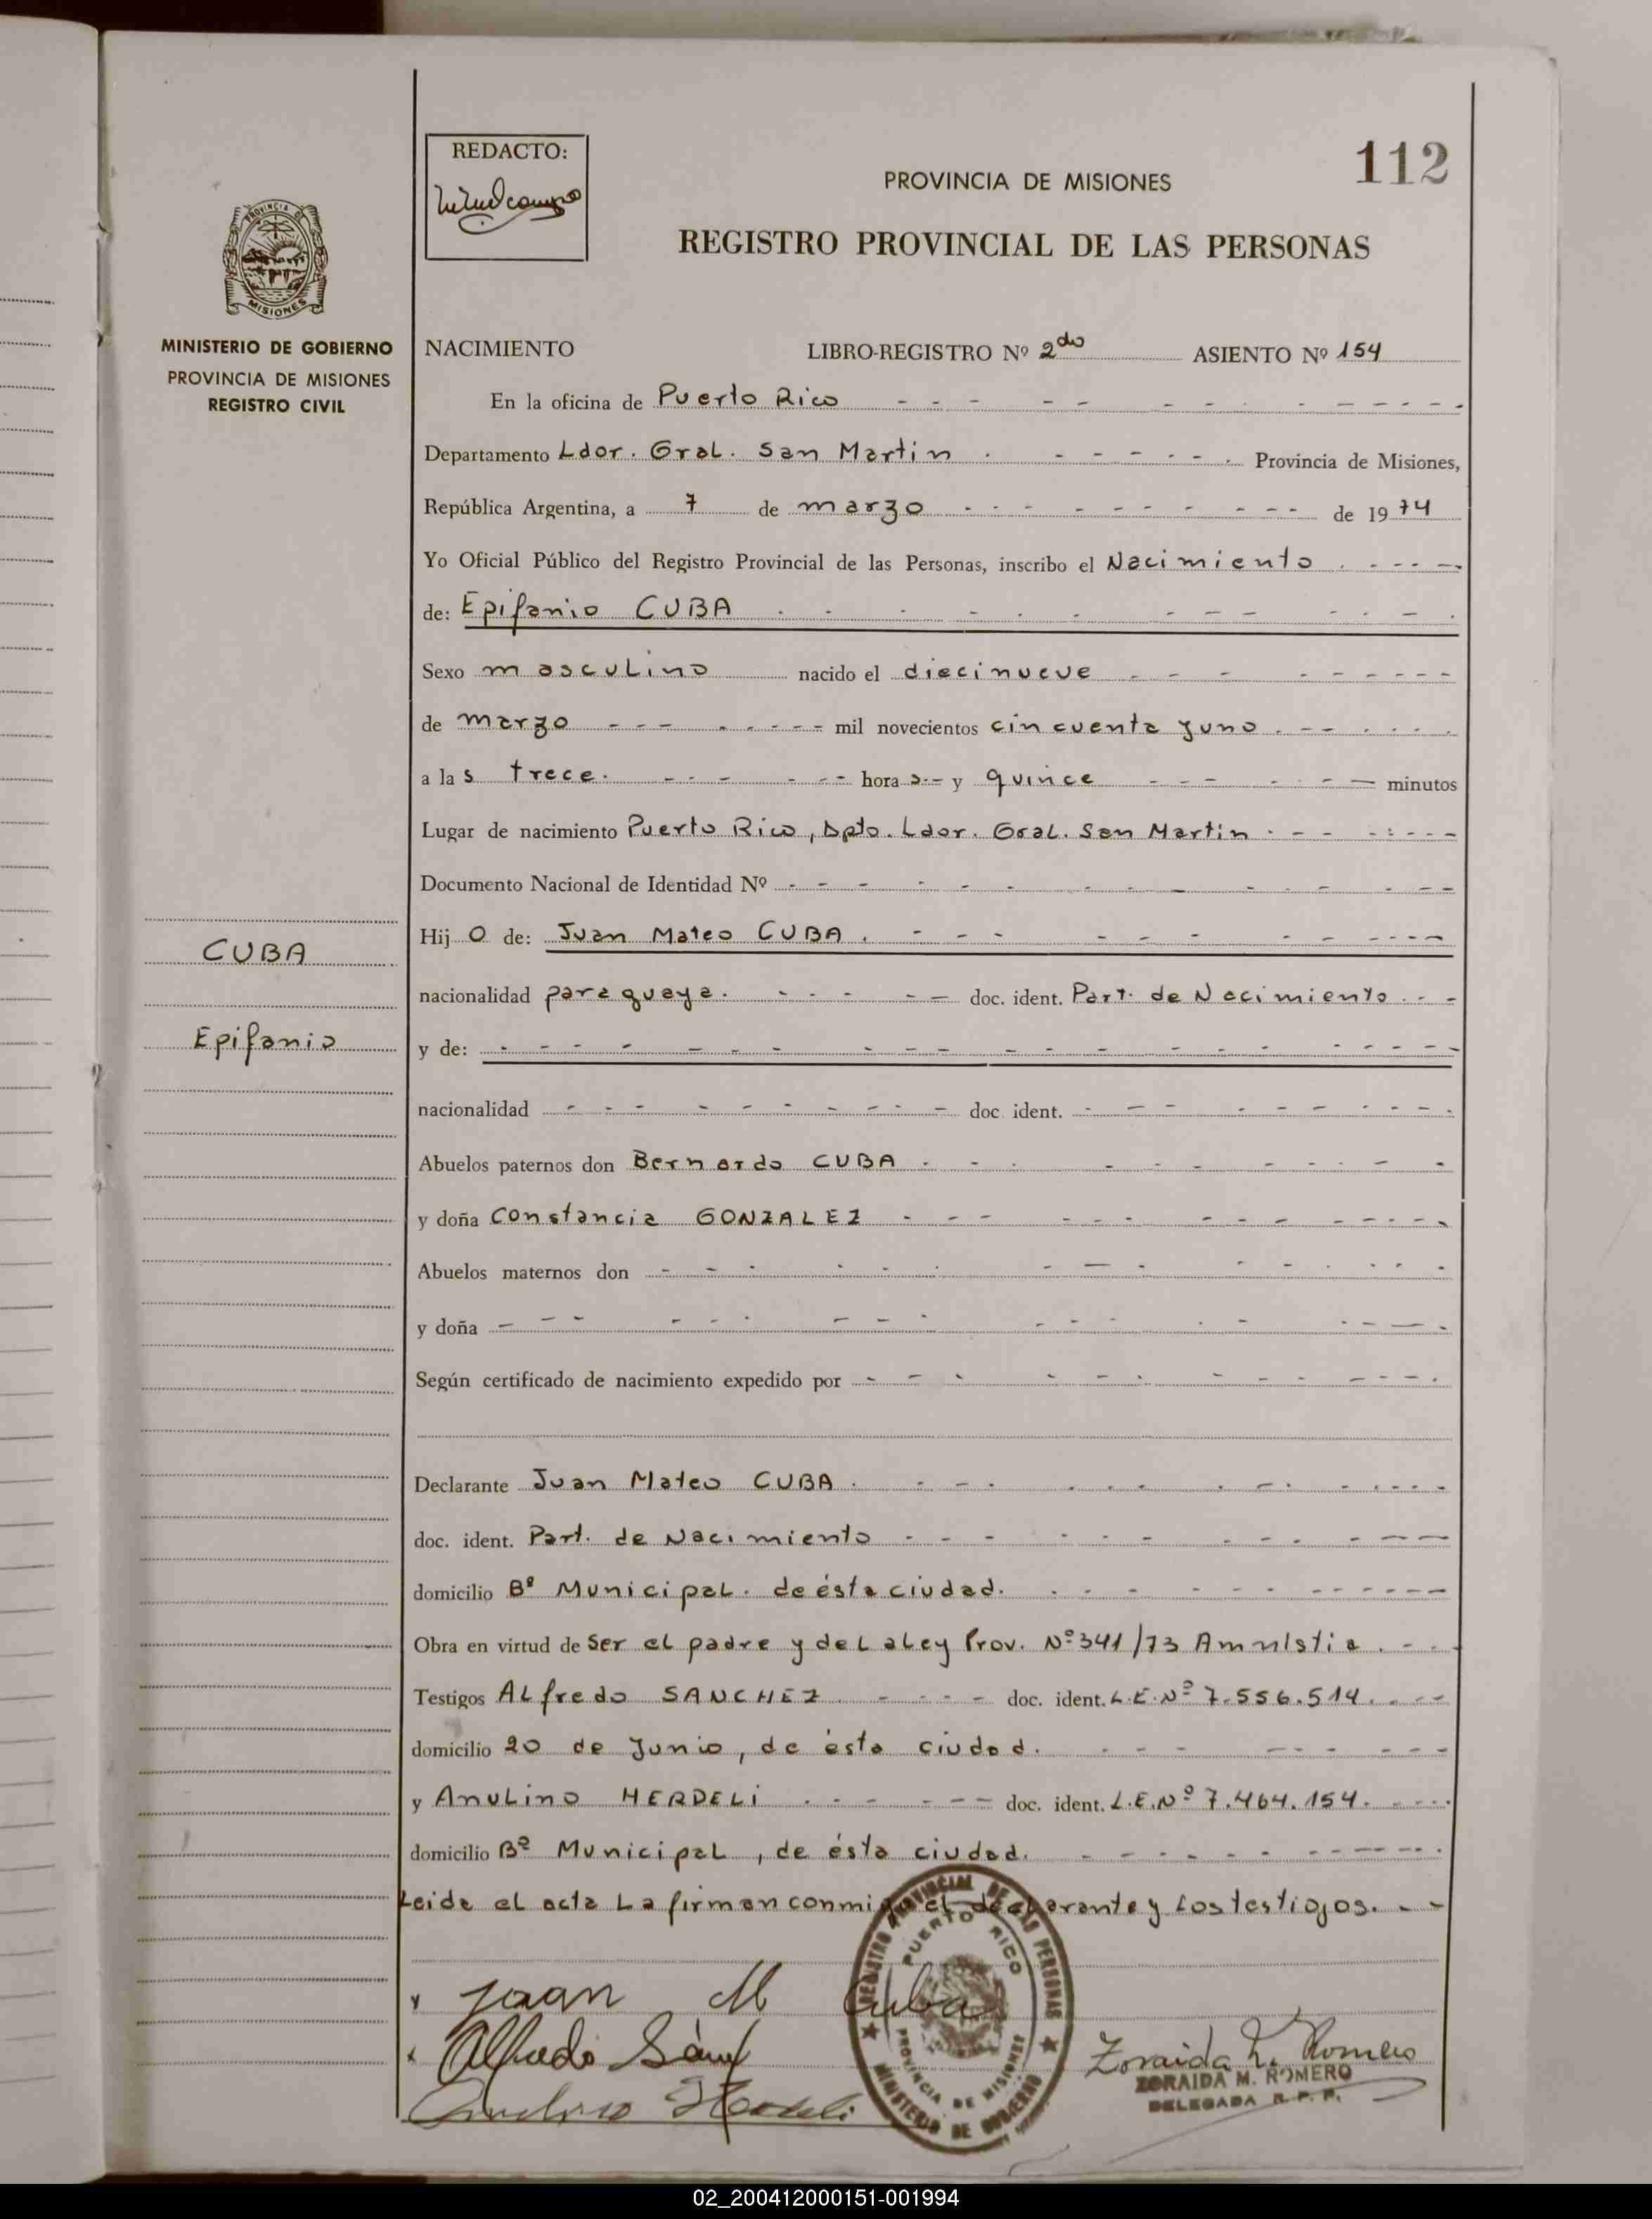 REDACTO:
112
PROVINCIA DE MISIONES
REGISTRO PROVINCIAL DE LAS PERSONAS
PROVINCIA DE
MISIONES
MINISTERIO DE GOBIERNO
PROVINCIA DE MISIONES
REGISTRO CIVIL
NACIMIENTO LIBRO-REGISTRO Nº 2do ASIENTO Nº 154
En la oficina de Puerto Rico
Departamento Ldor. Gral. San Martin Provincia de Misiones,
República Argentina, a 7 de marzo de 1974
Yo Oficial Público del Registro Provincial de las Personas, inscribo el Nacimiento
de: Epifanio CUBA
Sexo masculino nacido el diecinueve
de marzo mil novecientos cincuenta y uno
a las trece. horas y quince minutos
Lugar de nacimiento Puerto Rico, Dpto. Ldor. Gral. San Martin
Documento Nacional de Identidad Nº
Hijo de: Juan Mateo CUBA
nacionalidad paraguaya. doc. ident. Part. de Nacimiento
y de:
nacionalidad doc. ident.
Abuelos paternos don Bernardo CUBA
y doña Constancia GONZALEZ
Abuelos maternos don
y doña
Según certificado de nacimiento expedido por
Declarante Juan Mateo CUBA
doc. ident. Part. de Nacimiento
domicilio Bº Municipal. de ésta ciudad.
Obra en virtud de Ser el padre y de La Ley Prov. Nº 341/73 Amnistia
Testigos Alfredo SANCHEZ doc. ident. L.E.Nº 7.556.514.
domicilio 20 de Junio, de ésta ciudad.
y Anulino HERDELI doc. ident. L.E.Nº 7.464.154.
domicilio Bº Municipal, de ésta ciudad.
Leida el acta La firman conmigo el declarante y Los testigos.
CUBA
Epifanio
Juan M Cuba
REGISTRO PROVINCIAL DE LAS PERSONAS
PUERTO RICO
PROVINCIA DE MISIONES
MINISTERIO DE GOBIERNO
Zoraida M. Romero
ZORAIDA M. ROMERO
DELEGADA R. P. P.
02_200412000151-001994